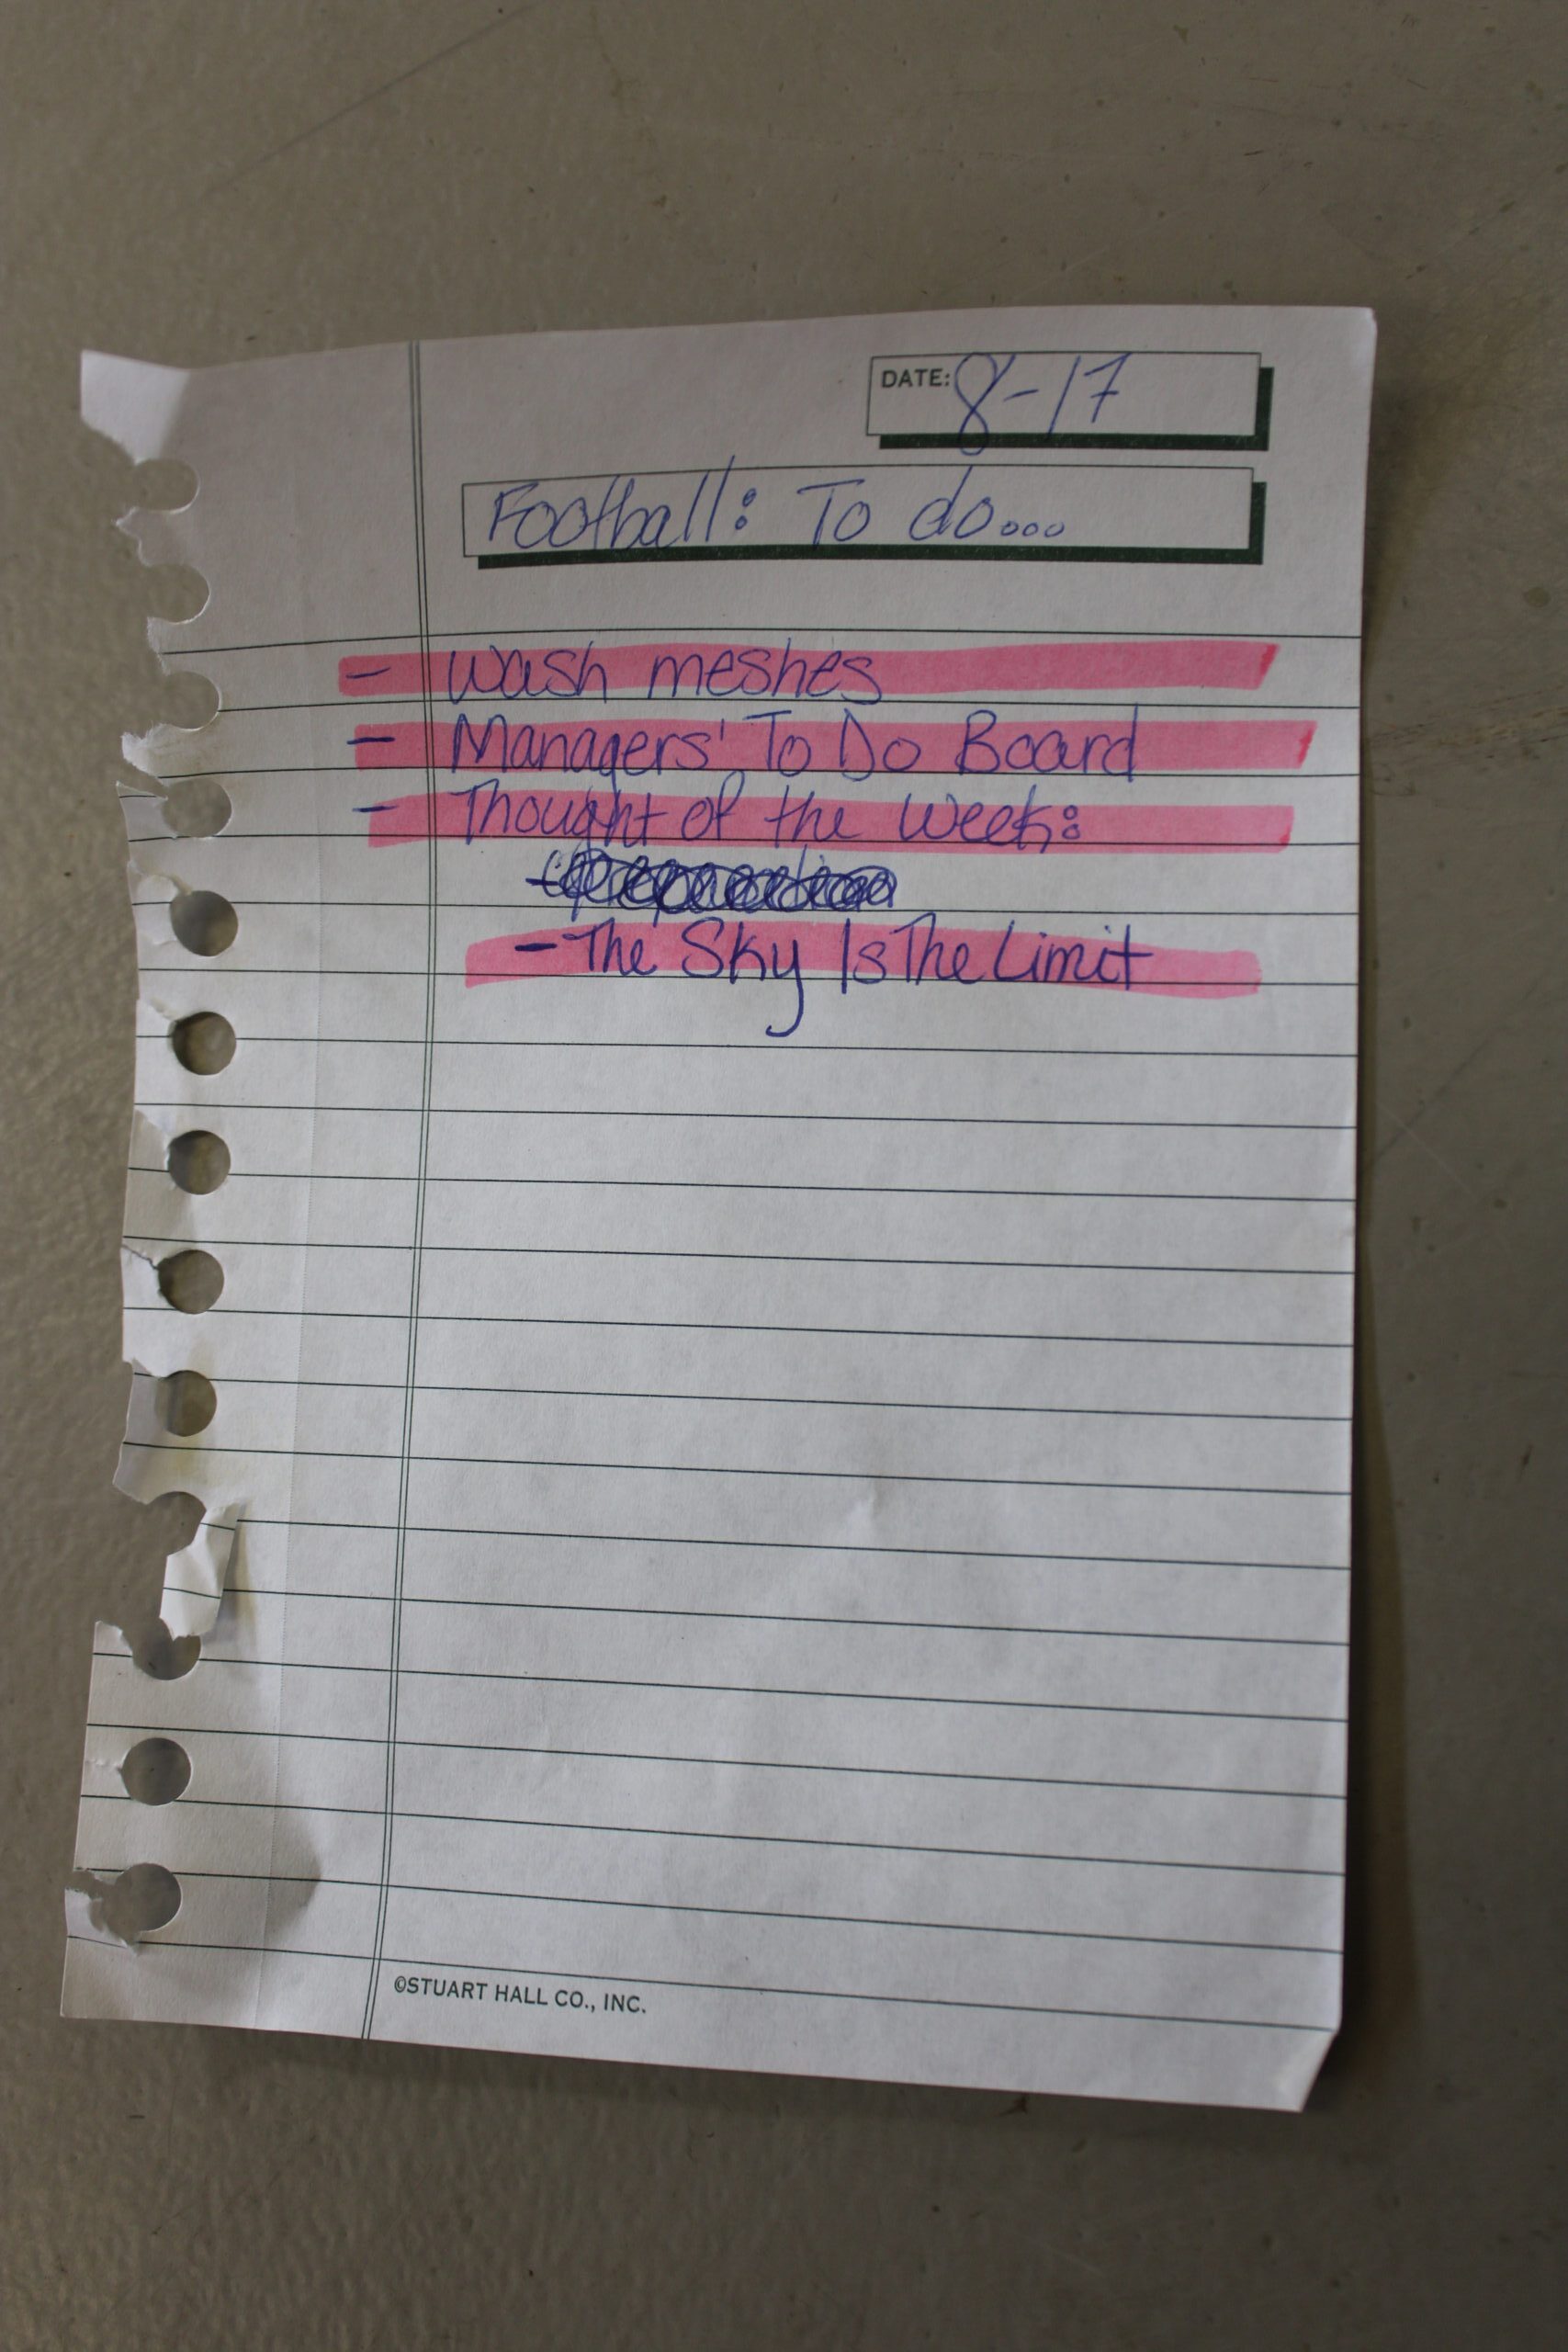 DATE: 8-17
Football: To do...
- Wash meshes
- Managers' To Do Board
- Thought of the Week:
- The Sky Is The Limit
©STUART HALL CO., INC.